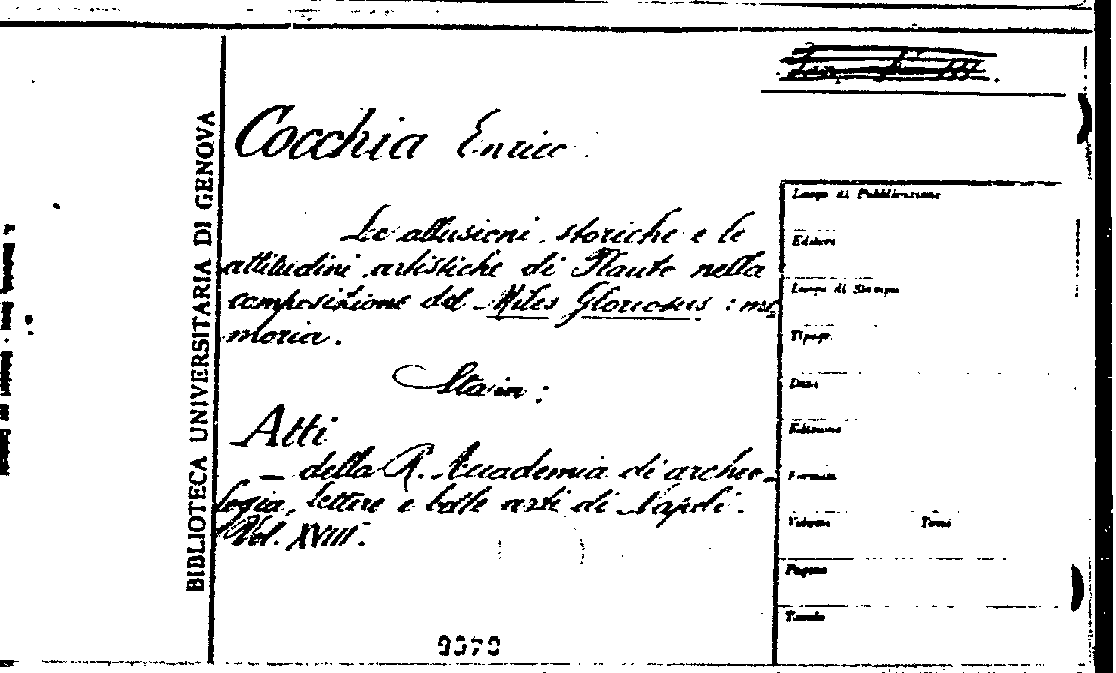 Cocchia Enrico.
Le allusioni storiche e le
attitudini artistiche di Plauto nella
composizione del Miles Gloriosus : me
moria.
Sta in:
Atti
- della R. Accademia di archeo-
logia, lettere e belle arti di Napoli.
Vol. XVIII.
BIBLIOTECA UNIVERSITARIA DI GENOVA
Luogo di Pubblicazione
Editore
Luogo di Stampa
Tipogr.
Data
Edizione
Formato
Volume Tomo
Pagine
Tavole